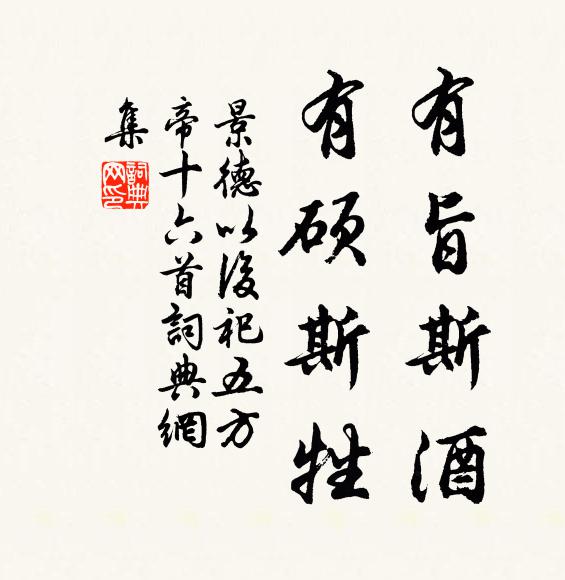 有旨斯酒
有硕斯牲
景德以後祀五方
帝十六首詞典網
集
詞典网印